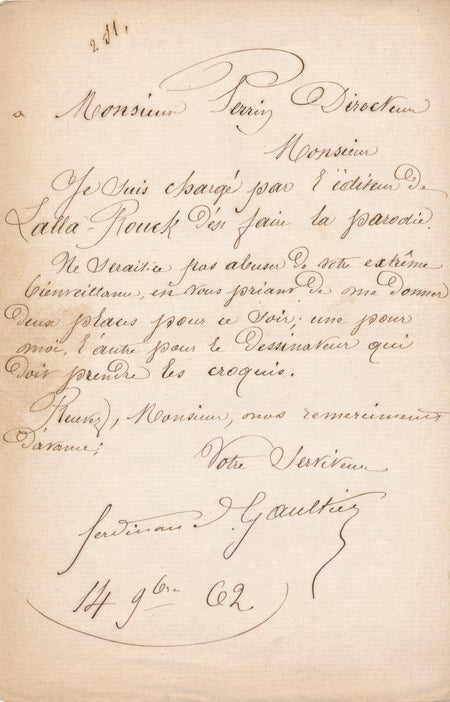 2 St.
a Monsieur Perrin Directeur
Monsieur
Je suis chargé par l'éditeur de
Lalla-Rouck d'én faire la parodie.
Ne serait-ce pas abuser de votre extrême
bienveillance, en vous priant de me donner
deux places pour ce soir; une pour
moi, l'autre pour le dessinateur qui
doit prendre les croquis.
Recevez, Monsieur, mes remerciments
d'avance;
Votre Serviteur
ferdinand Gaultier
14 9bre 62